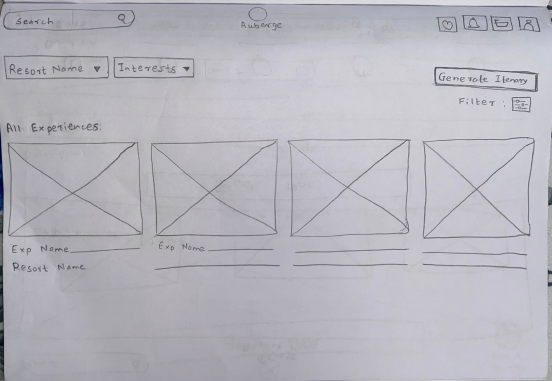 Search
Auberge
Resort Name ▼ Interests ▼
Generate Itenary
Filter :
All Experiences:
Exp Name
Exp Name
Resort Name